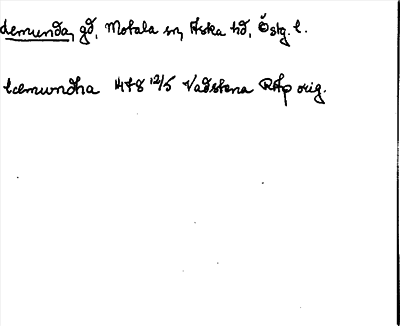 Lemunda, gd, Motala sn, Aska hd, Östg. l.
Lælmundha 1478 12/5 Vadstena RAp orig.